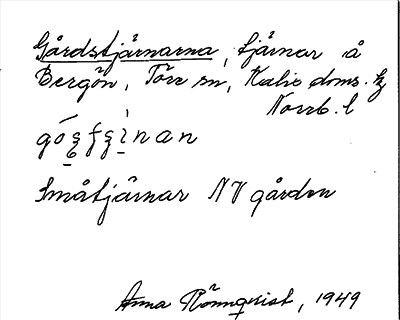 Gårdstjärnarna, tjärnar å
Bergön, Töre sn, Kalix doms. h
Norrb. l
Småtjärnar NV gården
Anna Rönnqvist, 1949